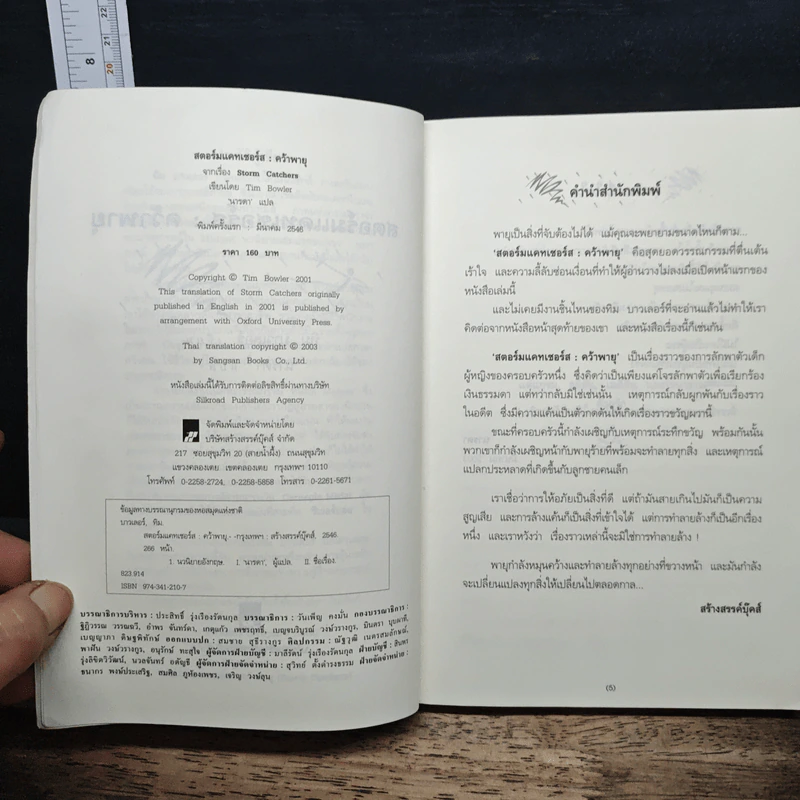 8
22
20 21
สตอร์มแคทเชอร์ส : คว้าพายุ
จากเรื่อง Storm Catchers
เขียนโดย Tim Bowler
'นารดา' แปล
พิมพ์ครั้งแรก : มีนาคม 2546
ราคา 160 บาท
Copyright © Tim Bowler 2001
This translation of Storm Catchers originally
published in English in 2001 is published by
arrangement with Oxford University Press.
Thai translation copyright © 2003
by Sangsan Books Co., Ltd.
หนังสือเล่มนี้ได้รับการติดต่อลิขสิทธิ์ผ่านทางบริษัท
Silkroad Publishers Agency
จัดพิมพ์และจัดจำหน่ายโดย
บริษัทสร้างสรรค์บุ๊คส์ จำกัด
217 ซอยสุขุมวิท 20 (สายน้ำผึ้ง) ถนนสุขุมวิท
แขวงคลองเตย เขตคลองเตย กรุงเทพฯ 10110
โทรศัพท์ 0-2258-2724, 0-2258-5858 โทรสาร 0-2261-5671
ข้อมูลทางบรรณานุกรมของหอสมุดแห่งชาติ
บาวเลอร์, ทิม.
สตอร์มแคทเชอร์ส : คว้าพายุ.- -กรุงเทพฯ : สร้างสรรค์บุ๊คส์, 2546.
266 หน้า.
1. นวนิยายอังกฤษ. I. นารดา', ผู้แปล. II. ชื่อเรื่อง.
823.914
ISBN 974-341-210-7
บรรณาธิการบริหาร : ประสิทธิ์ รุ่งเรืองรัตนกุล บรรณาธิการ : วันเพ็ญ คงมั่น กองบรรณาธิการ :
ฐิฏิวรรณ วรรณฉวี, อำพร จันทร์ดา, เกตุแก้ว เพชรฤทธิ์, เบญจบริบูรณ์ วงษ์วรางกูร, มินตรา
เบญญาภา ดิษฐพิทักษ์ ออกแบบปก : สมชาย สุธีรางกูร ศิลปกรรม : ณัฐวุฒิ เนตรสมลักษณ์,
พาฝัน วงษ์วรางกูร, อนุรักษ์ ทะสุใจ ผู้จัดการฝ่ายบัญชี : มาลีรัตน์ รุ่งเรืองรัตนกุล ฝ่ายบัญชี :
รุ่งลิขิตวิวัฒน์, นวลจันทร์ อดัญธี ผู้จัดการฝ่ายจัดจำหน่าย : สุวิทย์ ตั้งดำรงธรรม ฝ่ายจัดจำหน่าย :
ธนากร พงษ์ประเสริฐ, สมศิล ภูท้องเพชร, เจริญ วงษ์ลุน
คำนำสำนักพิมพ์
พายุเป็นสิ่งที่จับต้องไม่ได้ แม้คุณจะพยายามขนาดไหนก็ตาม...
'สตอร์มแคทเชอร์ส : คว้าพายุ' คือสุดยอดวรรณกรรมที่ตื่นเต้น
เร้าใจ และความลี้ลับซ่อนเงื่อนที่ทำให้ผู้อ่านวางไม่ลงเมื่อเปิดหน้าแรกของ
หนังสือเล่มนี้
และไม่เคยมีงานชิ้นไหนของทิม บาวเลอร์ที่จะอ่านแล้วไม่ทำให้เรา
คิดต่อจากหนังสือหน้าสุดท้ายของเขา และหนังสือเรื่องนี้ก็เช่นกัน
'สตอร์มแคทเชอร์ส : คว้าพายุ' เป็นเรื่องราวของการลักพาตัวเด็ก
ผู้หญิงของครอบครัวหนึ่ง ซึ่งคิดว่าเป็นเพียงแค่โจรลักพาตัวเพื่อเรียกร้อง
เงินธรรมดา แต่ทว่ากลับมิใช่เช่นนั้น เหตุการณ์กลับผูกพันกับเรื่องราว
ในอดีต ซึ่งมีความแค้นเป็นตัวกดดันให้เกิดเรื่องราวขวัญผวานี้
ขณะที่ครอบครัวนี้กำลังเผชิญกับเหตุการณ์ระทึกขวัญ พร้อมกันนั้น
พวกเขาก็กำลังเผชิญหน้ากับพายุร้ายที่พร้อมจะทำลายทุกสิ่ง และเหตุการณ์
แปลกประหลาดที่เกิดขึ้นกับลูกชายคนเล็ก
เราเชื่อว่าการให้อภัยเป็นสิ่งที่ดี แต่ถ้ามันสายเกินไปมันก็เป็นความ
สูญเสีย และการล้างแค้นก็เป็นสิ่งที่เข้าใจได้ แต่การทำลายล้างก็เป็นอีกเรื่อง
หนึ่ง และเราหวังว่า เรื่องราวเหล่านี้จะมิใช่การทำลายล้าง !
พายุกำลังหมุนคว้างและทำลายล้างทุกอย่างที่ขวางหน้า และมันกำลัง
จะเปลี่ยนแปลงทุกสิ่งให้เปลี่ยนไปตลอดกาล...
สร้างสรรค์บุ๊คส์
(5)